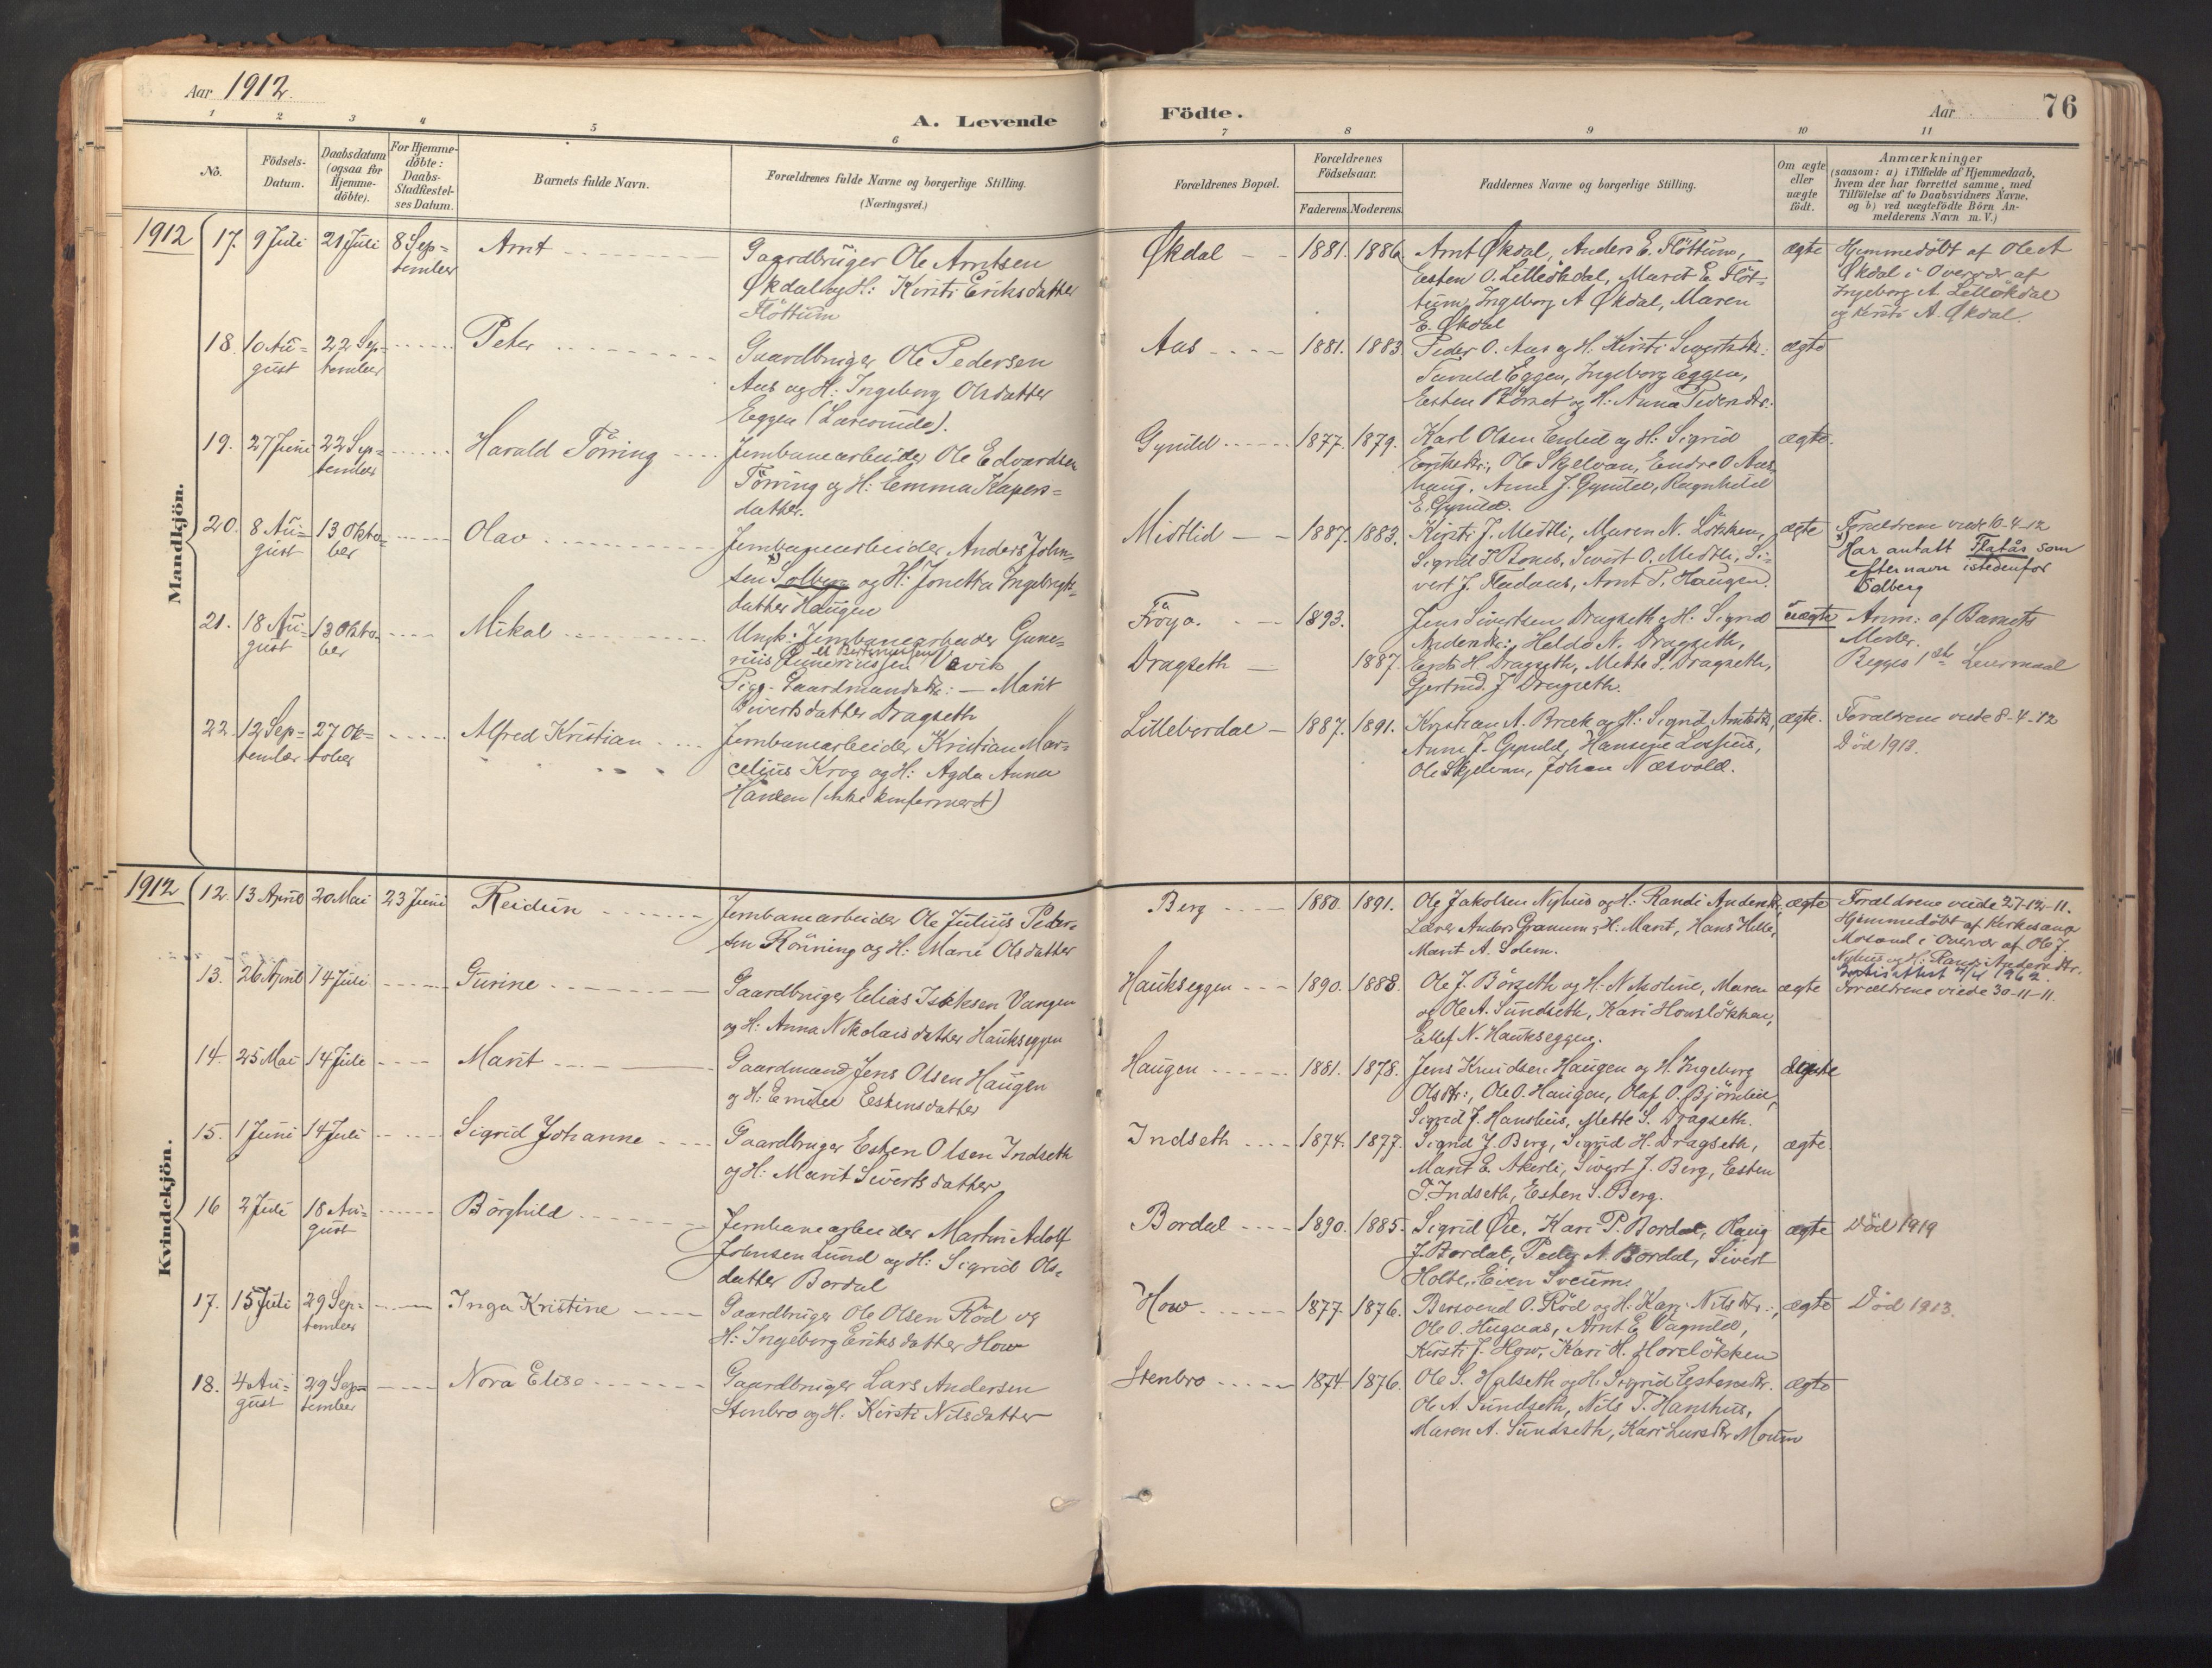 Aar 1912.
A. Levende Födte.
Aar 76
1 2 3 4 5 6 7 8 9 10 11
No.
Födsels-
Datum.
Daabsdatum
(ogsaa for
Hjemme-
döbte).
For Hjemme-
döbte:
Daabs-
Stadfæstel-
ses Datum.
Barnets fulde Navn.
Forældrenes fulde Navne og borgerlige Stilling.
(Næringsvei.)
Forældrenes Bopæl.
Forældrenes
Födselsaar.
Faderens. Moderens.
Faddernes Navne og borgerlige Stilling.
Om ægte
eller
uægte
födt.
Anmærkninger
(saasom: a) i Tilfælde af Hjemmedaab,
hvem der har forrettet samme, med
Tilföielse af to Daabsvidners Navne,
og b) ved uægtefödte Börn An-
melderens Navn m. V.)
Mandkjön.
1912
17. 9 Juli 21 Juli 8 Sep-
tember
Arnt
Gaardbruger Ole Arntsen
Økdal og H: Kirsti Eriksdatter
Flöttum
Økdal 1881. 1886
Arnt Økdal, Anders E. Flöttum,
Esten O. Lilleökdal, Marit E. Flöt-
tum, Ingeborg A Økdal, Maren
E. Økdal
ægte
Hjemmedöbt af Ole A
Økdal i Overvær af
Ingeborg A. Lilleökdal
og Kirsti A. Økdal.
18. 10 Au-
gust
22 Sep-
tember
Peter
Gaardbruger Ole Pedersen
Aas og H: Ingeborg Olsdatter
Eggen
Aas 1881. 1883.
Peder O. Aas og H: Kirsti Sivertsdtr:
Eggen, Ingeborg Eggen,
Esten og H: Anna Pedersdtr:
ægte
19. 27 Juni 22 Sep-
tember
Harald Törring
Jernbanearbeider Ole Edvardsen
Törring og H: Emma Kaspers-
datter.
Gynild 1877. 1879.
Karl Olsen Enlid og H: Sigrid
Eriksdtr:, Ole Skjelvan, Endre O Aas-
haug, Anne J. Gynild, Ragnhild
E. Gynild.
ægte.
20. 8 Au-
gust
13 Okto-
ber
Olav
Jernbanearbeider Anders John-
sen x) Solberg og H: Jonetta Ingebrigts-
datter Haugen
Midtlid 1887. 1883.
Kirsti J. Midtli, Maren N. Lökken,
Sigrid P. Bones, Sivert O. Midtli, Si-
vert J. Fladaas, Arnt P. Haugen.
ægte
Forældrene viede 10-4-12
x) Har antatt Flatås som
efternavn istedenfor
Solberg
21. 18 Au-
gust
13 Okto-
ber
Mikal
Ungk: Jernbanearbeider Gune-
rius Guneriussen Vavik
Pige- Gaardmandsdtr: — Marit
Sivertsdatter Dragseth
Fröya. 1893.
Dragseth 1887.
Jens Sivertsen Dragseth og H: Sigrid
Andersdtr:, Haldo N. Dragseth,
H. Dragseth, Mette S. Dragseth,
Gjertrud J Dragseth.
uægte
Anm: af Barnets
Moder.
Begges 1ste Leiermaal
22. 12 Sep-
tember
27 Ok-
tober
Alfred Kristian
Jernbanearbeider Kristian Mar-
celius Krog og H: Agda Anna
Hansen (ikke konfirmeret)
Lillebordal 1887. 1891.
Kristian A. Bræk og H: Sigrid Arntsdtr,
Anne J. Gynild, Hansine Lossius,
Ole Skjelvan, Johan Næsvold.
ægte.
Forældrene viede 8-4-12
Död 1913.
Kvindekjön.
1912
12. 13 April 20 Mai 23 Juni
Reidun
Jernbanearbeider Ole Julius Peder-
sen Rönning og H: Marie Olsdatter
Berg 1880. 1891.
Ole Jakobsen Nyhus og H: Randi Andersdtr,
Lærer Anders Granum og H: Marit, Hans Hilli,
Marit A. Solem.
ægte
Forældrene viede 27-12-11.
Hjemmedöbt af Kirkesanger
Mosand i Overvær af Ole J.
Nyhus og H: Randi Andersdtr.
1962.
13. 26 April 14 Juli
Gurine
Gaardbruger Elias Isaksen Vangen
og H: Anna Nikolaisdatter Haukseggen
Haukseggen 1890. 1888.
Ole J. Börseth og H: Nikoline, Maren
og Ole A. Sundseth, Kari Honslökken,
Ellef N. Haukseggen.
ægte
Forældrene viede 30-11-11.
14. 25 Mai 14 Juli
Marit
Gaardmand Jens Olsen Haugen
og H: Emilie Estensdatter
Haugen 1881. 1878.
Jens Knudsen Haugen og H. Ingeborg
Olsdtr:, Ole O. Haugen, Olaf O. Bjørnlid,
Sigrid J. Hanshus, Mette S. Dragseth.
ægte
15. 1 Juni 14 Juli
Sigrid Johanne
Gaardbruger Esten Olsen Indseth
og H: Marit Sivertsdatter
Indseth 1874. 1877.
Sigrid J. Berg, Sigrid H. Dragseth,
Marit E. Akerli, Sivert J. Berg, Esten
T. Indseth, Esten S. Berg.
ægte.
16 2 Juli 18 Au-
gust
Borghild
Jernbanearbeider Martin Adolf
Johnsen Lund og H: Sigrid Ols-
datter Bordal
Bordal 1890. 1885.
Sigrid Øie, Kari P. Bordal, Haug
J. Bordal, Peder A. Bordal, Sivert
Holte, Even Sveum.
ægte
Död 1919
17. 15 Juli 29 Sep-
tember
Inga Kristine
Gaardbruger Ole Olsen Röd og
H: Ingeborg Eriksdatter How
How 1877. 1876.
Bersvend O. Röd og H: Kari Nilsdtr:,
Ole O. Hugaas, Arnt E. Vagnild,
Kirsti J. How, Kari H. Horslökken
ægte
Död 1913.
18. 4 Au-
gust
29 Sep-
tember
Nora Elise
Gaardbruger Lars Andersen
Stenbro og H. Kirsti Nilsdatter
Stenbro 1874 1876.
Ole S. Halseth og H: Sigrid Estensdtr.
Ole A. Sundseth, Nils T. Hanshus,
Maren A. Sundseth, Kari Larsdtr Moum
ægte